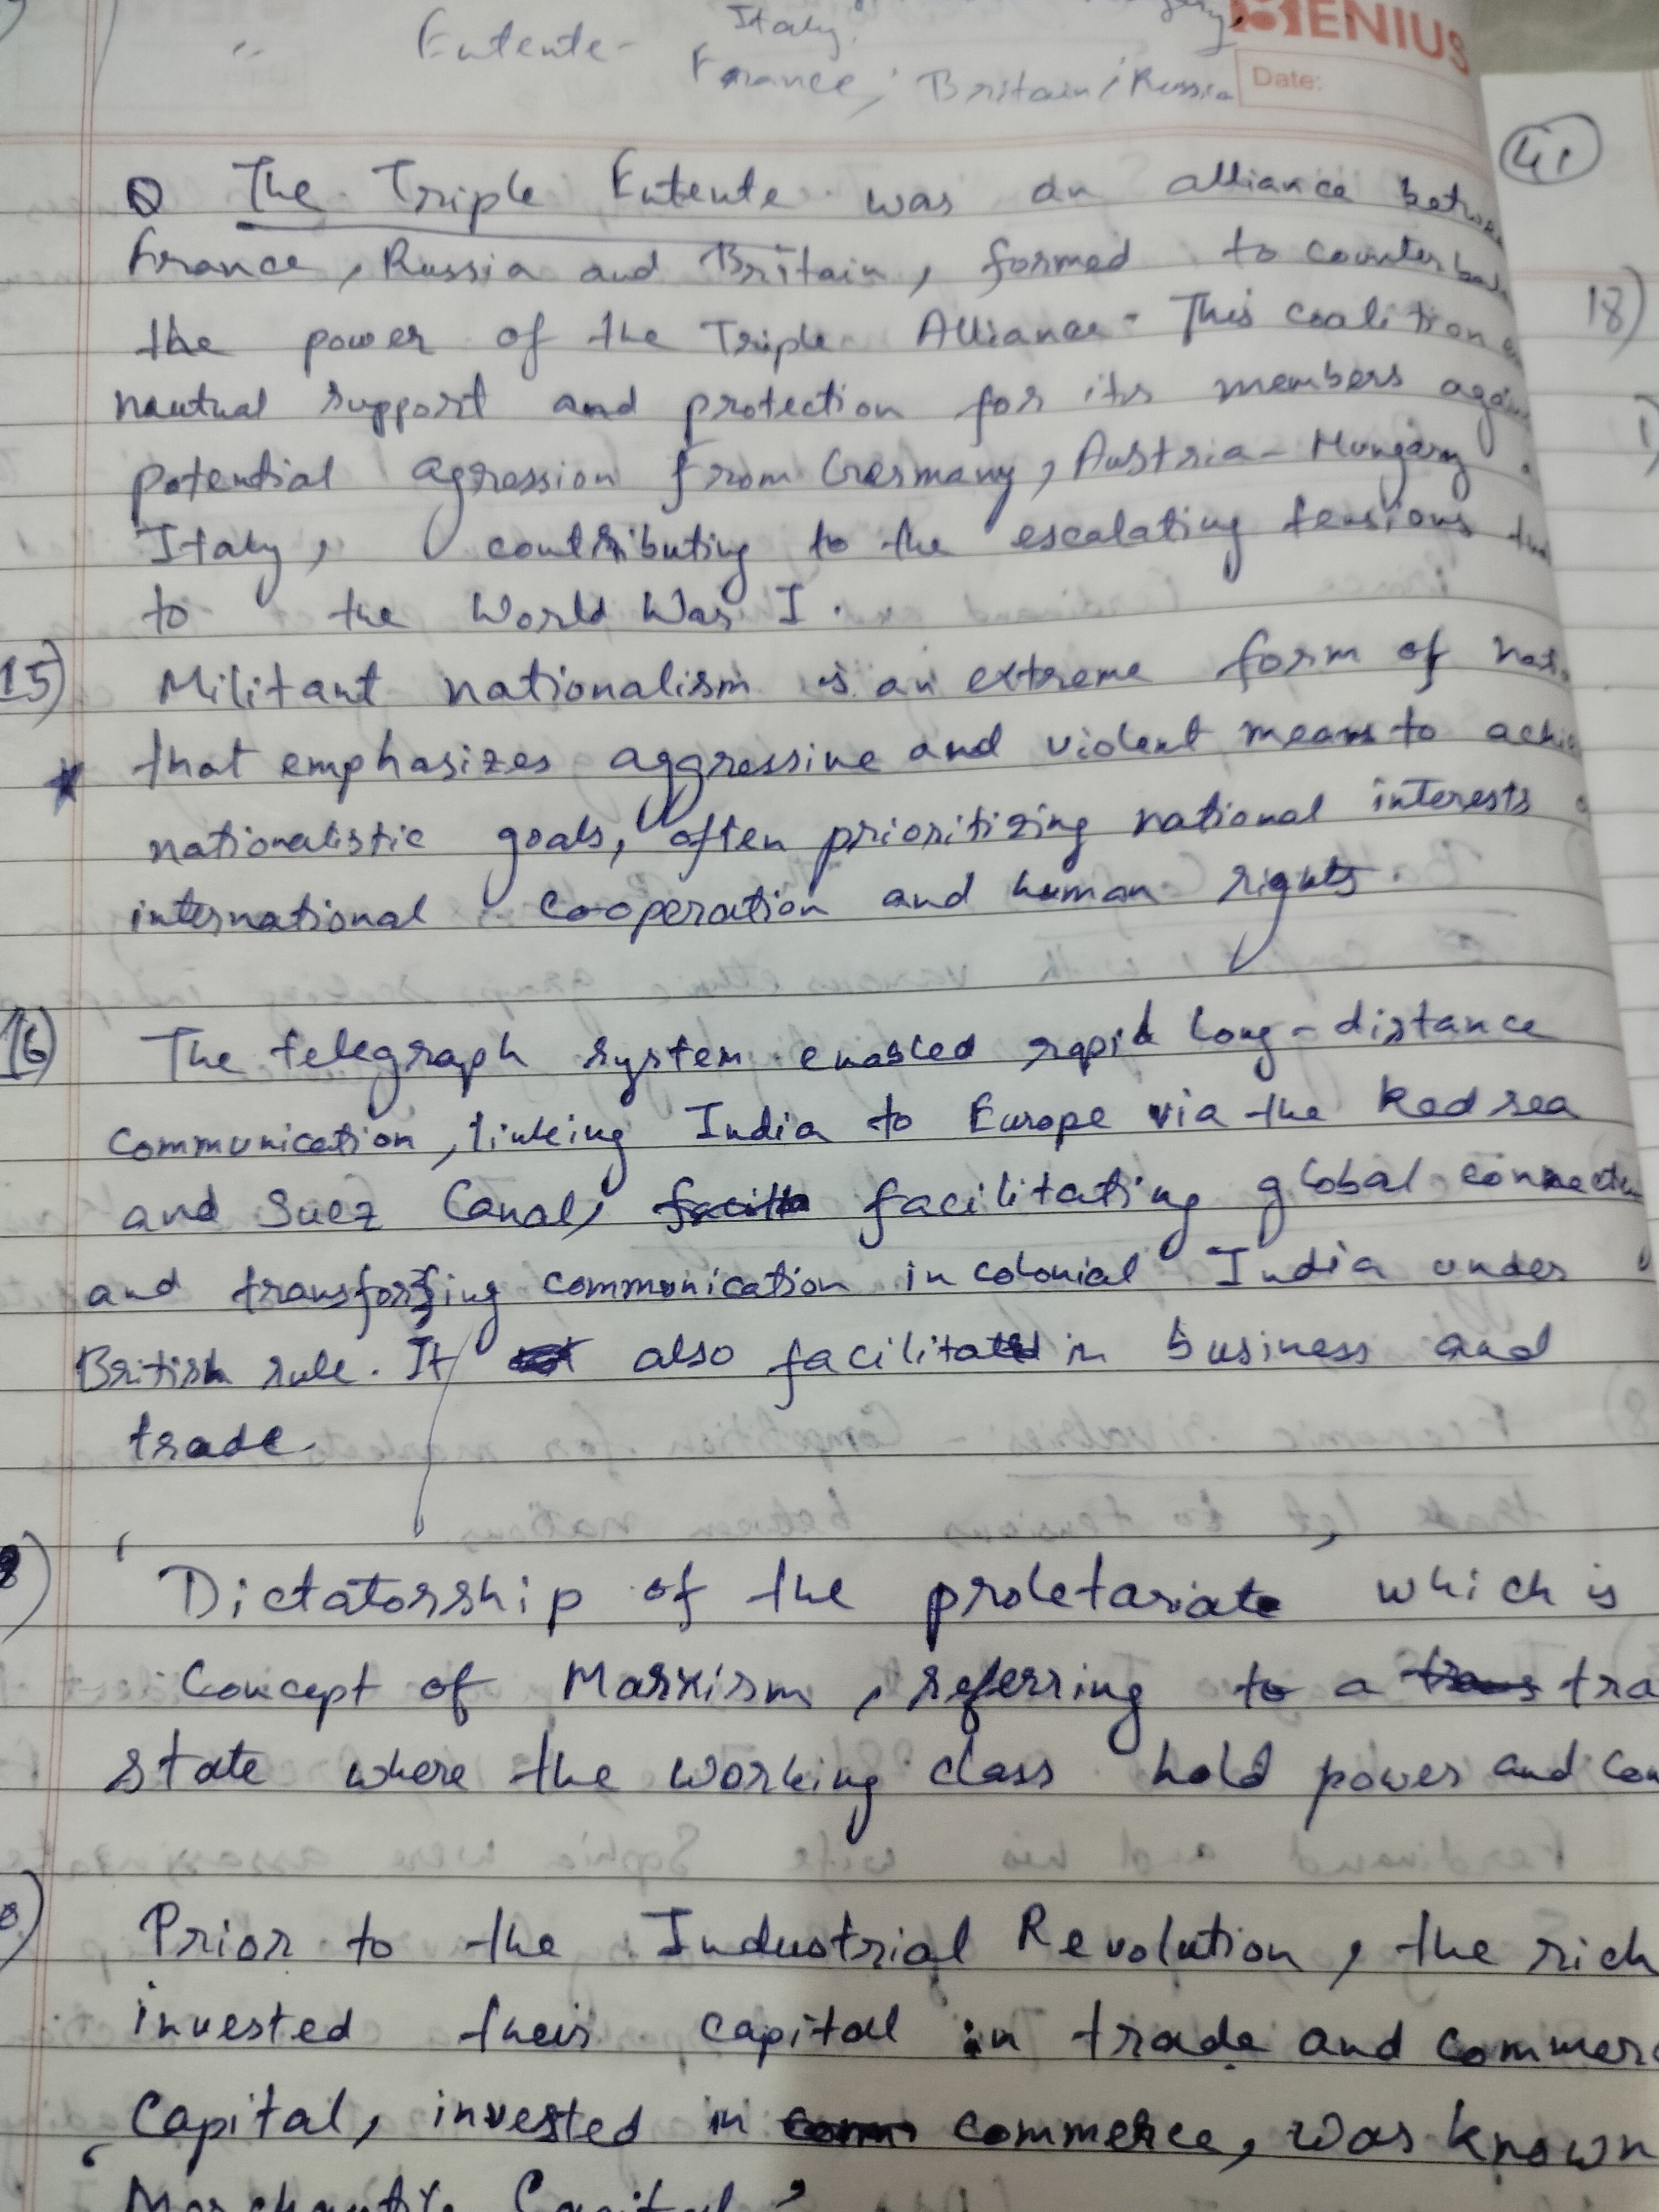 Italy.
GENIUS
Entente - France, Britain, Russia
Date:
41
Q The Triple Entente was an alliance
France, Russia and Britain, formed to
18)
the power of the Triple Alliance. This coalition
mutual support and protection for its members
potential agression from Germany, Austria-Hungary
Italy, contributing to the escalating tensions
to the World War I.
15) Militant nationalism is an extreme form of
that emphasizes aggressive and violent means to
nationalistic goals, often prioritizing national interests
international cooperation and human rights.
16) The telegraph system enabled rapid long-distance
communication, linking India to Europe via the Red sea
and Suez Canal, facilitating global
and transforming communication in colonial India under
British rule. It also facilitated in business and
trade.
'Dictatorship of the proletariate which is
Concept of Marxism, referring to a
state where the working class hold power and
Prior to the Industrial Revolution, the rich
invested their capital in trade and
Capital, invested in commerce, was known
'Merchantile Capital'